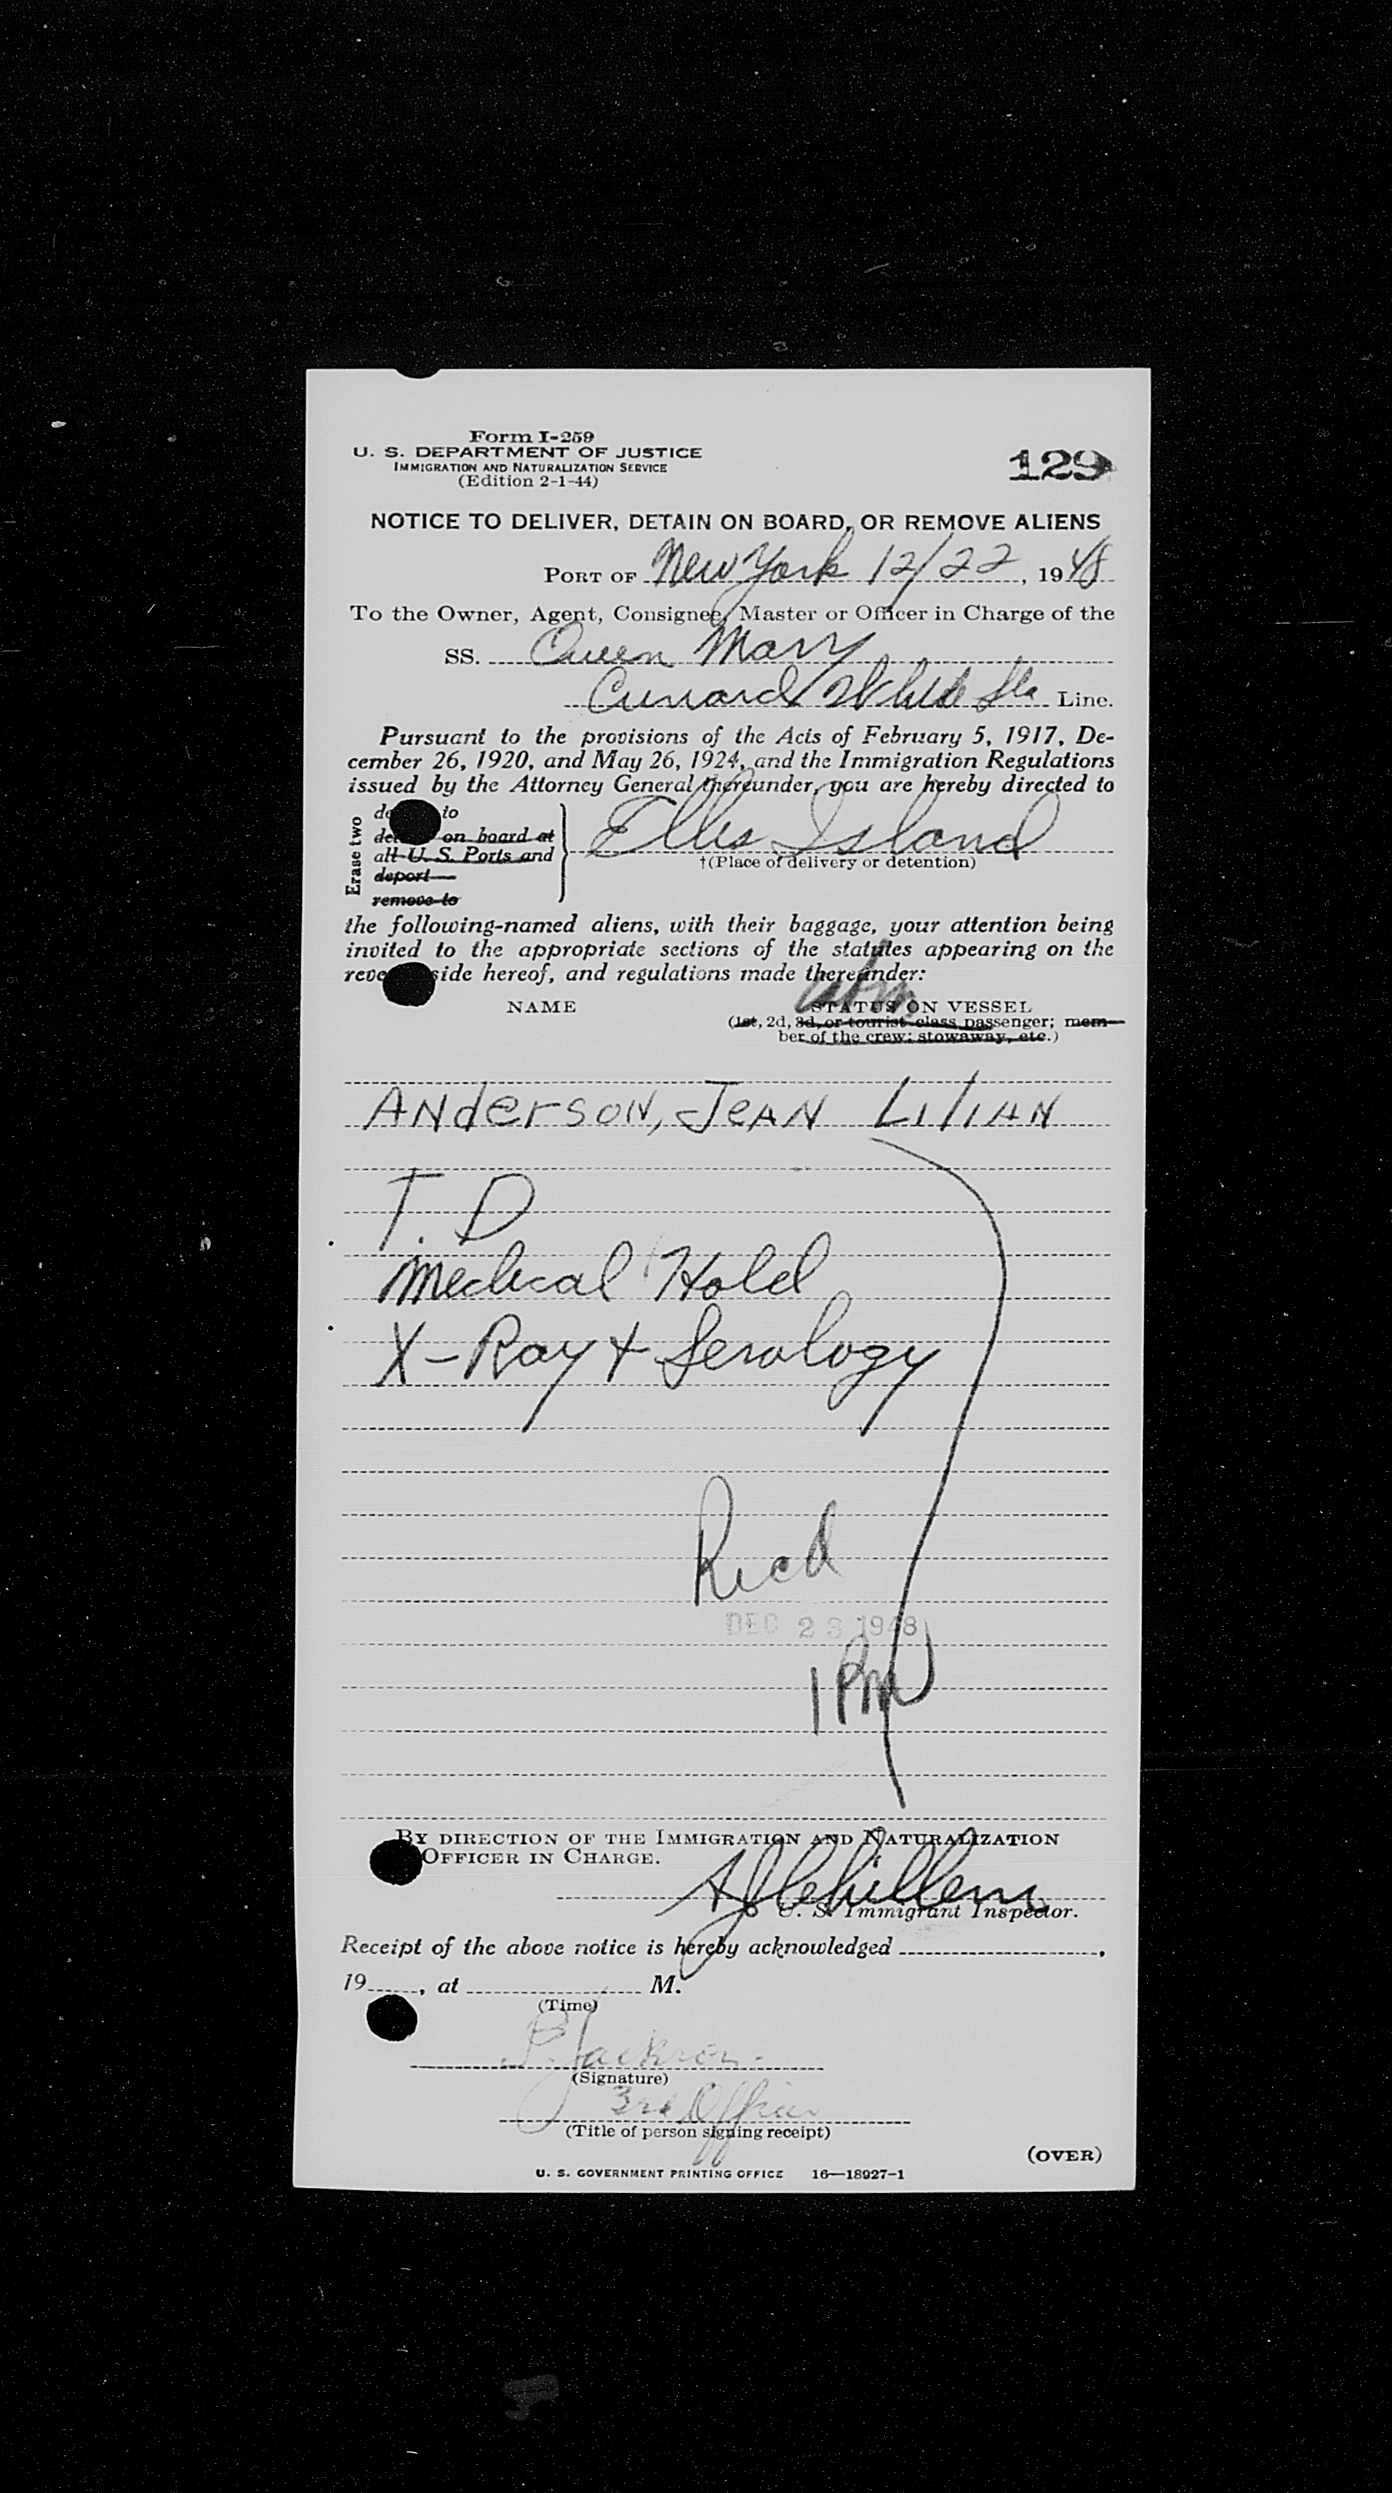 Form I-259
U. S. DEPARTMENT OF JUSTICE
IMMIGRATION AND NATURALIZATION SERVICE
(Edition 2-1-44)
129
NOTICE TO DELIVER, DETAIN ON BOARD, OR REMOVE ALIENS
PORT OF New York 12/22, 1948
To the Owner, Agent, Consignee, Master or Officer in Charge of the
SS. Queen Mary
Cunard White Sta Line.
Pursuant to the provisions of the Acts of February 5, 1917, De-
cember 26, 1920, and May 26, 1924, and the Immigration Regulations
issued by the Attorney General thereunder, you are hereby directed to
Erase two
to
on board at
all U. S. Ports and
deport
remove to
Ellis Island
†(Place of delivery or detention)
the following-named aliens, with their baggage, your attention being
invited to the appropriate sections of the statutes appearing on the
reve side hereof, and regulations made thereunder:
NAME
STATUS ON VESSEL
(1st, 2d, 3d, or tourist class passenger; mem-
ber of the crew; stowaway, etc.)
Anderson, Jean Lilian
T. D
Medical Hold
X-Ray + Serology
Recd
DEC 23 1948
1 PM
BY DIRECTION OF THE IMMIGRATION AND NATURALIZATION
OFFICER IN CHARGE.
U. S. Immigrant Inspector.
Receipt of the above notice is hereby acknowledged ,
19 , at M.
(Time)
Jackson
(Signature)
3rd Officer
(Title of person signing receipt)
(OVER)
U. S. GOVERNMENT PRINTING OFFICE 16—18927-1